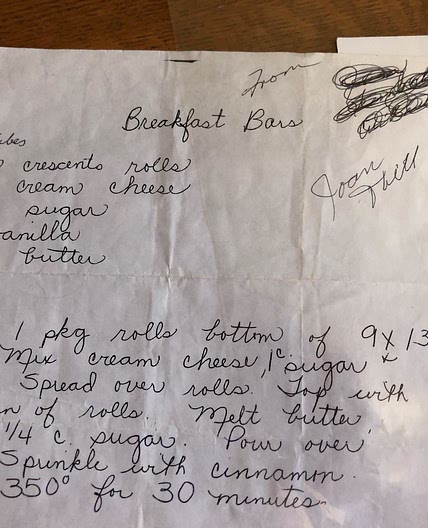 From
Breakfast Bars
Joan
crescents rolls
cream cheese
sugar
anilla
butter
1 pkg rolls bottom of 9x13
Mix cream cheese, 1c sugar +
Spread over rolls. Top with
n of rolls. Melt butter
1/4 c. sugar. Pour over.
Sprinkle with cinnamon.
350° for 30 minutes.